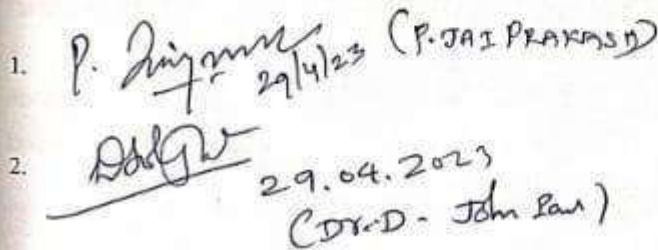 1. P. 29/4/23 (P. JAI PRAKASH)
2.
29.04.2023
(Dr. D. John Paul)